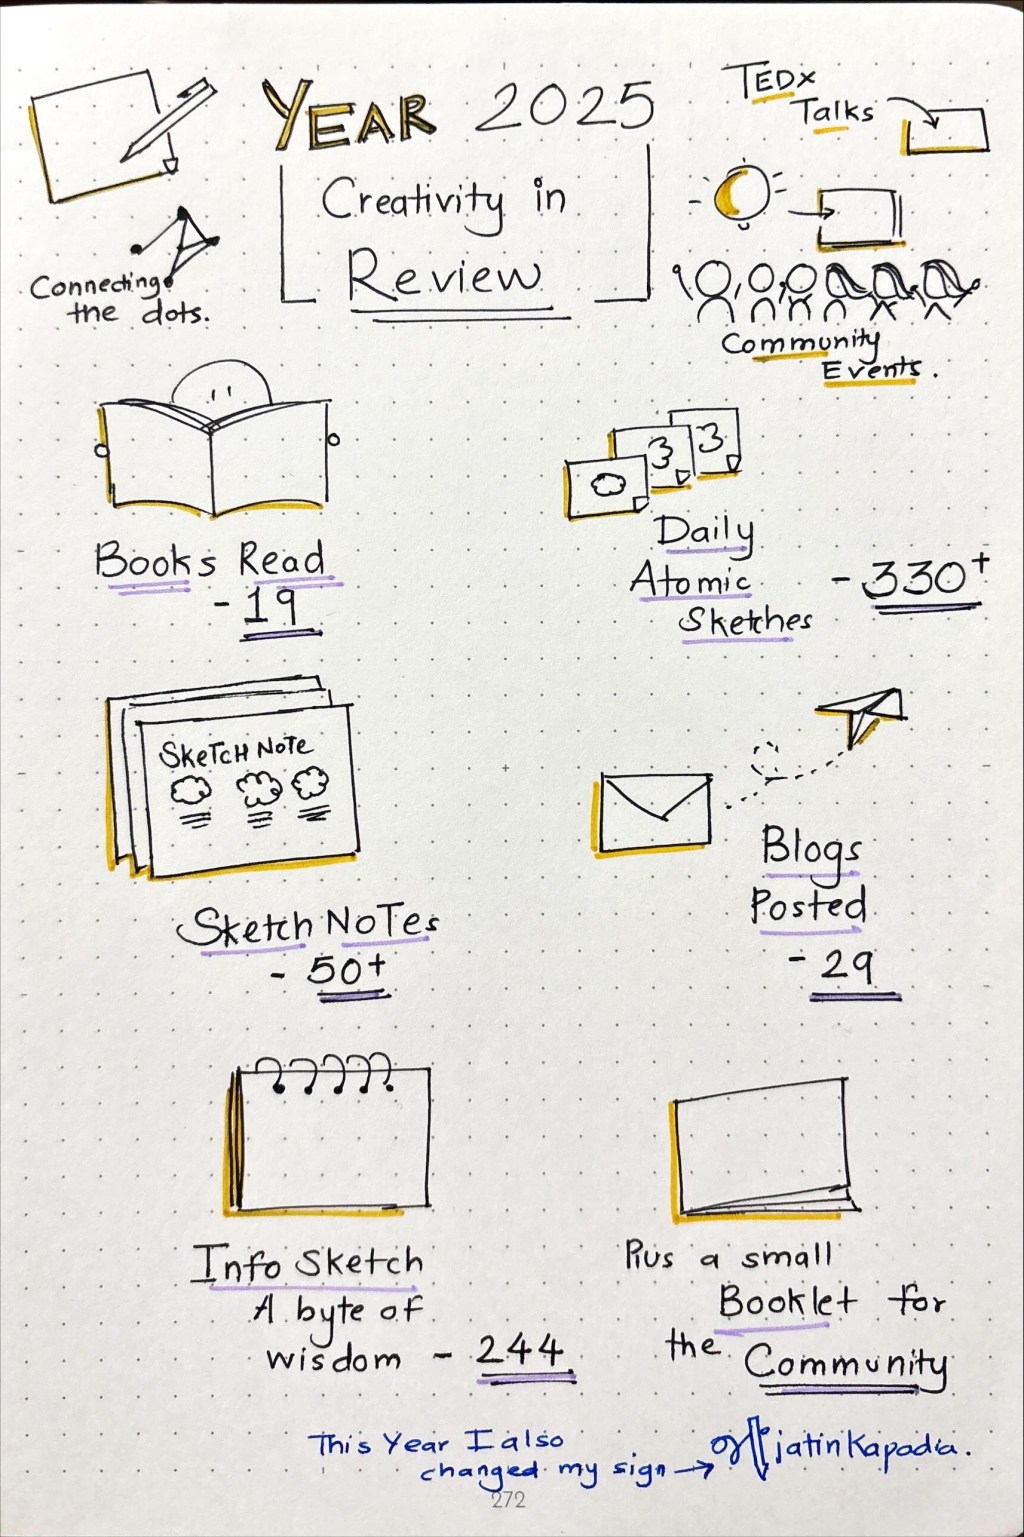 YEAR 2025
Creativity in
Review
TEDx
Talks
Connecting
the dots.
Community
Events.
3
3
Books Read
- 19
Daily
Atomic
Sketches
- 330+
SKETCH NOTE
Sketch NoTes
- 50+
Blogs
Posted
- 29
Info Sketch
A byte of
wisdom - 244
Plus a small
Booklet for
the Community
This Year I also
changed my sign →
jatinkapadia.
272